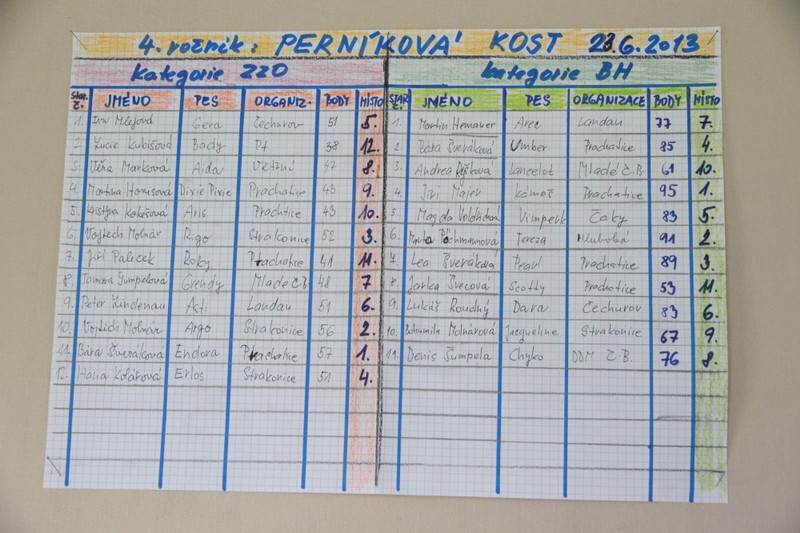 4. ročník: PERNÍKOVÁ KOST 23.6.2013
kategorie ZZO kategorie BH
Star. č. JMÉNO PES ORGANIZ. BODY MÍSTO STAR. č. JMÉNO PES ORGANIZACE BODY MÍSTO
1. Iva Mlejová Gera Čechurov 51 5. 1. Martin Hemauer Arec Landau 77 7.
2. Lucie Kubišová Bady PT 38 12. 2. Bára Šveráková Umber Prachatice 85 4.
3. Věra Marková Aida 47 8. 3. Andrea Lancelot Mladé Č.B. 61 10.
4. Martina Dixie Pixie Prachatice 43 9. 4. Jiří Majer Prachatice 95 1.
5. Kristýna Aris Prachatice 43 10. 5. Magda Vimperk Čaky 83 5.
6. Vojtěch Molnár Rigo Strakonice 52 3. 6. Tereza Hluboká 91 2.
7. Jiří Roky Prachatice 41 11. 7. Lea Šveráková Pearl Prachatice 89 3.
8. Tamara Šumpelová Grendy Mladé Č.B 48 7 8. Jarka Švecová Scotty Prachatice 53 11.
9. Peter Lindenau Asti Landau 51 6. 9. Lukáš Roudný Dara Čechurov 83 6.
10. Vojtěch Molnár Argo Strakonice 56 2. 10. Bohumila Molnárová Jacqueline Strakonice 67 9.
11. Bára Šveráková Endora Prachatice 57 1. 11. Denis Šumpela Chyko DDM Č.B. 76 8.
12. Hana Kolářová Erlos Strakonice 51 4.